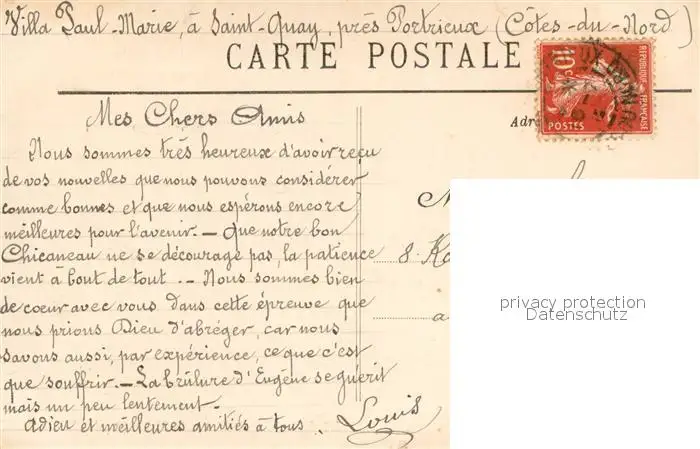 Villa Paul-Marie, à Saint-Quay, près Portrieux (Côtes-du-Nord)
CARTE POSTALE
10c
REPUBLIQUE FRANÇAISE
POSTES
Mes Chers Amis
Adr
Nous sommes très heureux d'avoir reçu
de vos nouvelles que nous pouvons considérer
comme bonnes et que nous espérons encore
meilleures pour l'avenir. — Que notre bon
Chicaneau ne se décourage pas, la patience
vient à bout de tout. — Nous sommes bien
de coeur avec vous dans cette épreuve que
nous prions Dieu d'abréger, car nous
savons aussi, par expérience, ce que c'est
que souffrir. — La brûlure d'Eugène se guérit
mais un peu lentement.
Adieu et meilleures amitiés à tous.
Louis
8
a
privacy protection
Datenschutz